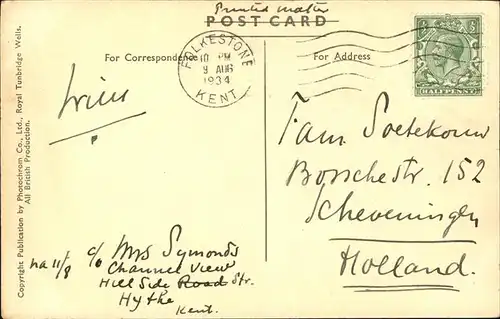 Printed matter
POST CARD
For Correspondence
For Address
FOLKESTONE
10 PM
9 AUG
1934
KENT
HALFPENNY
Copyright Publication by Photochrom Co., Ltd., Royal Tunbridge Wells.
All British Production.
Fam. Soetekouw
Bosschestr. 152
Scheveningen
Holland.
na 11/8
c/o Mrs Symonds
Channel View
Hill Side Road Str.
Hythe
Kent.